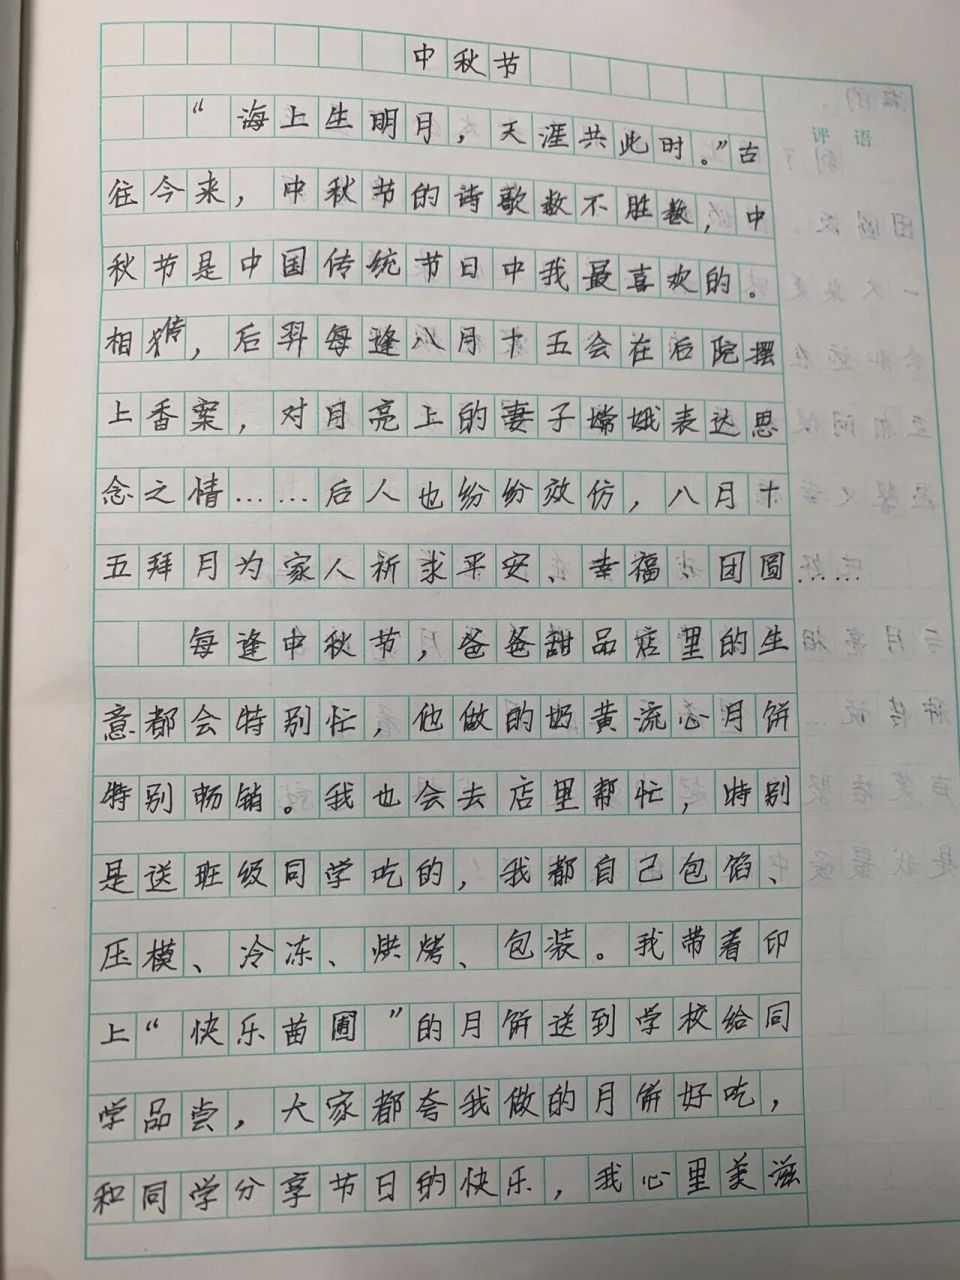 中秋节
“海上生明月，天涯共此时。”古
往今来，中秋节的诗歌数不胜数，中
秋节是中国传统节日中我最喜欢的。
相传，后羿每逢八月十五会在后院摆
上香案，对月亮上的妻子嫦娥表达思
念之情……后人也纷纷效仿，八月十
五拜月为家人祈求平安、幸福、团圆……
每逢中秋节，爸爸甜品店里的生
意都会特别忙，他做的奶黄流心月饼
特别畅销。我也会去店里帮忙，特别
是送班级同学吃的，我都自己包馅、
压模、冷冻、烘烤、包装。我带着印
上“快乐苗圃”的月饼送到学校给同
学品尝，大家都夸我做的月饼好吃，
和同学分享节日的快乐，我心里美滋
评 语